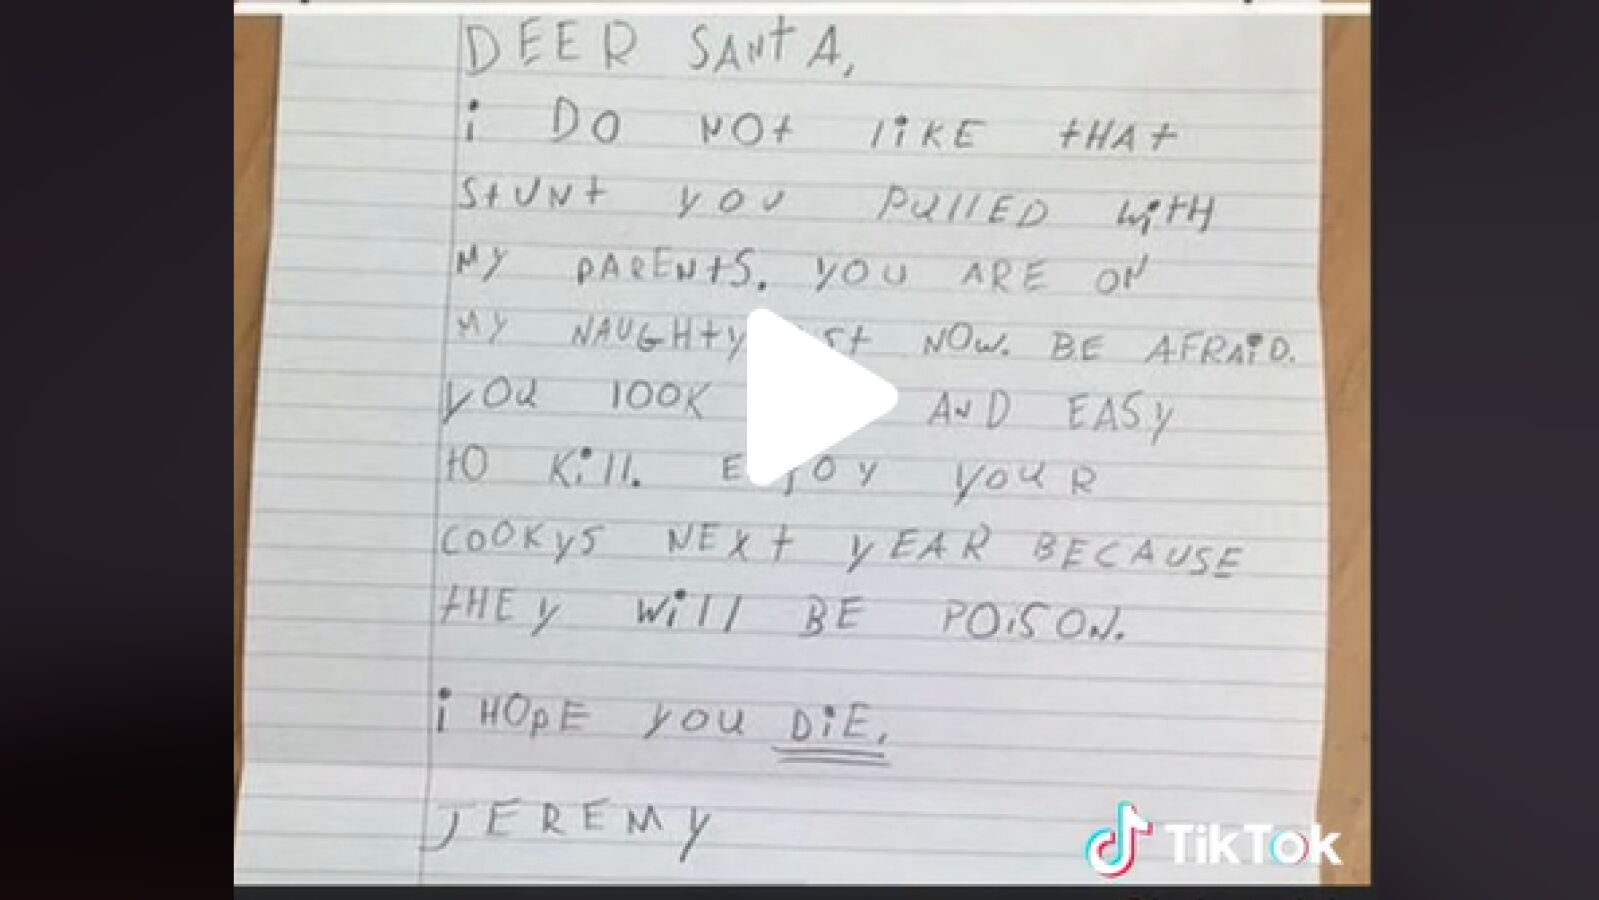 DEER SANtA,
i DO NOt liKE tHAt
StUNt yOU PUllED WitH
MY PARENtS. YOU ARE ON
MY NAUGHtY NOW. BE AFRAiD.
yOU lOOK AND EASy
tO Kill. YOUR
COOKyS NEXt yEAR BECAUSE
tHEy Will BE POiSON.
i HOpE YOU DiE.
JEREMy
TikTok